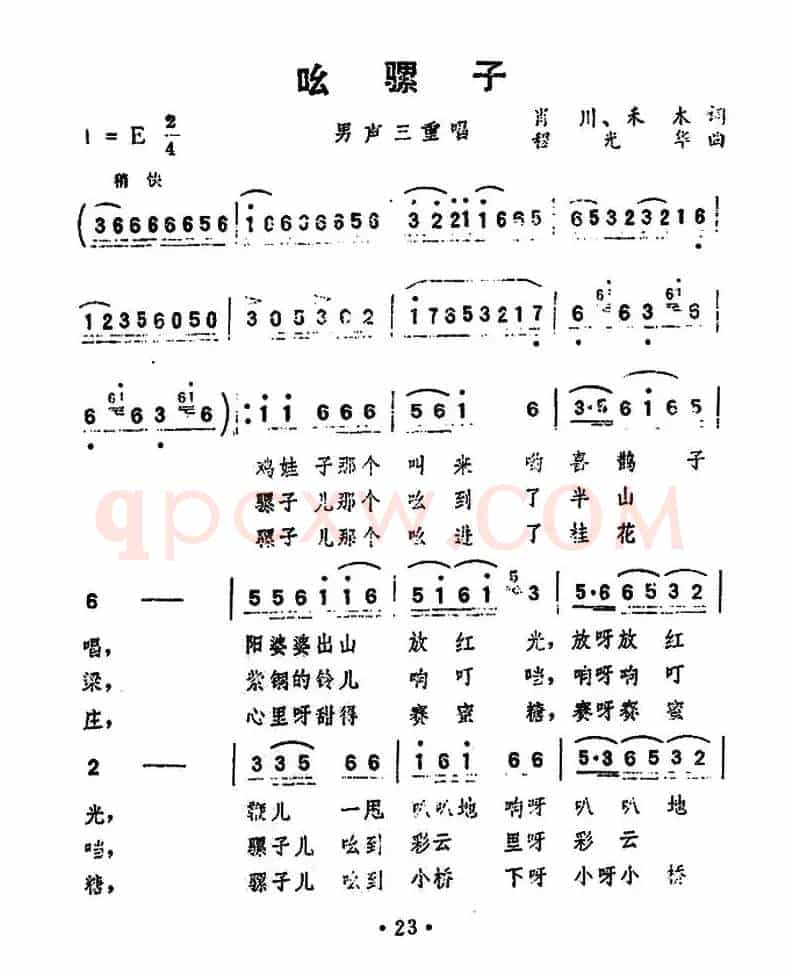 吆骡子
1 = E 2/4
男声三重唱
肖川、禾木词
程光华曲
稍快
(36666656 | i0606656 | 3221i665 | 65323216
12356050 | 305302 | i7653217 | 6 63 6
6 63 6) | ii 666 | 56i 6 | 3·5 6i65
鸡娃子那个叫来哟喜鹊子
骡子儿那个吆到了半山
骡子儿那个吆进了桂花
qpcxw.COM
6 — | 556ii6 | 5i6i 3 | 5·6 6532
唱，阳婆婆出山放红光，放呀放红
梁，紫铜的铃儿响叮当，响呀响叮
庄，心里呀甜得赛蜜糖，赛呀赛蜜
2 — | 335 66 | i6i 66 | 5·3 6532
光，鞭儿一甩叭叭地响呀叭叭地
当，骡子儿吆到彩云里呀彩云
糖，骡子儿吆到小桥下呀小呀小桥
·23·